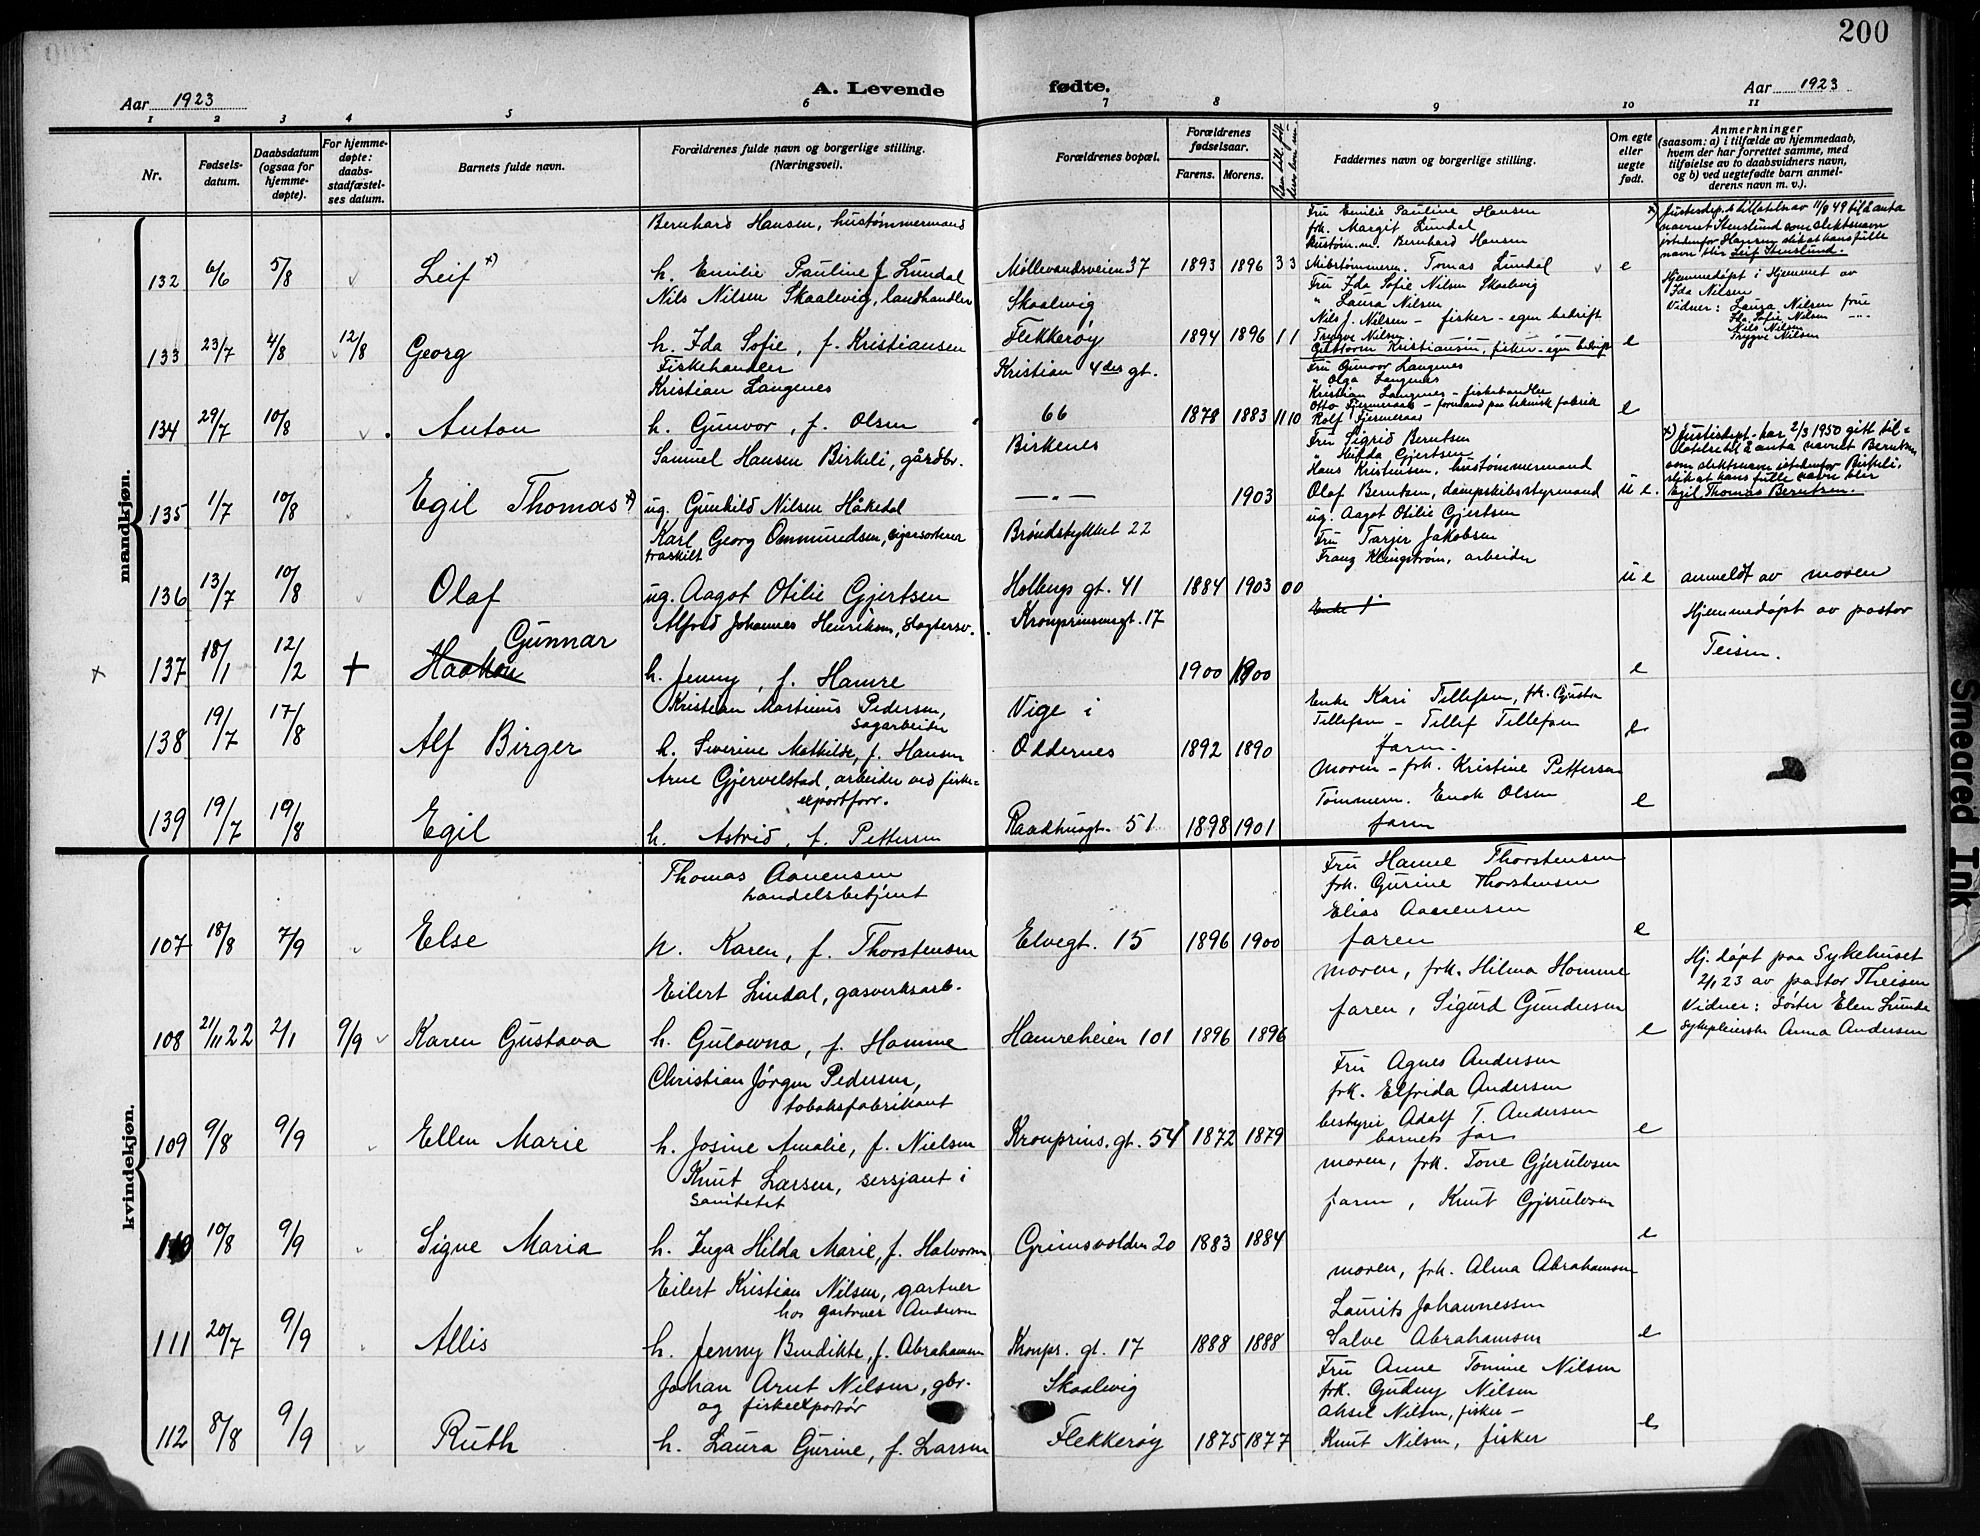 200
A. Levende fødte.
Aar 1923
Aar 1923
1 2 3 4 5 6 7 8 9 10 11
Nr.
Fødsels-
datum.
Daabsdatum
(ogsaa for
hjemme-
døpte).
For hjemme-
døpte:
daabs-
stadfæstel-
ses datum.
Barnets fulde navn.
Forældrenes fulde navn og borgerlige stilling.
(Næringsvei).
Forældrenes bopæl.
Forældrenes
fødselsaar.
Farens. Morens.
Faddernes navn og borgerlige stilling.
Om egte
eller
uegte
født.
Anmerkninger
(saasom: a) i tilfælde av hjemmedaab,
hvem der har forrettet samme, med
tilføielse av to daabsvidners navn,
og b) ved uegtefødte barn anmel-
derens navn m. v.).
mandkjøn.
132 6/6 5/8 Leif x)
Bernhard Hansen, hustømmermand
h. Emilie Pauline f. Lundal
Møllevandsveien 37 1893 1896 3 3
Fru Emilie Pauline Hansen
frk. Margit Lundal
hustøm.m. Bernhard Hansen
Skibstømmerm. Tomas Lundal
e
x) Justisdep.s tillatelse av 11/8 49 til å anta
navnet Stenslund som slektsnavn
istedenfor Hansen slik at hans fulle
navn blir Leif Stenslund.
133 23/7 4/8 12/8 Georg
Nils Nilsen Skaalevig, landhandler
h. Ida Sofie, f. Kristiansen
Skaalevig
Flekkerøy 1894 1896 1 1
Fru Ida Sofie Nilsen Skaalvig
" Laura Nilsen
Nils J. Nilsen - fisker - egen bedrift
Trygve Nilsen
Kristiansen, fisker - egen bedrift
e
Hjemmedøpt i Hjemmet av
Ida Nilsen
Vidner: Laura Nilsen frue
Ida Sofie Nilsen
Nils Nilsen
Trygve Nilsen
134 29/7 10/8 Anton
Fiskehandler
Kristian Langenes
h. Gunvor, f. Olsen
Kristian 4des gt.
66 1878 1883 11 10
Fru Gunvor Langenes
" Olga Langenes
Kristian Langenes - fiskehandler
Otto Fjermeraas - formand paa teknisk fabrik
Rolf Fjermeraas
e
135 1/7 10/8 Egil Thomas x)
Samuel Hansen Birkeli, gårdbr.
ug. Gunhild Nilsen Håkedal
Birkenes
— " — 1903
Fru Sigrid Berntsen
" Hulda Gjertsen
Hans Kristensen, hustømmermand
Olaf Berntsen, dampskibsstyrmand
u e.
x) Justisdept. har 2/3 1950 gitt til-
latelse til å anta navnet Berntsen
som slektsnavn istedenfor Birkeli,
slik at hans fulle navn blir
Egil Thomas Berntsen.
136 13/7 10/8 Olaf
Karl Georg Ommundsen, cigarsorterer
fraskilt
ug. Aagot Otilie Gjertsen
Brøndstykket 22
Holbergs gt. 41 1884 1903 0 0
ug. Aagot Otilie Gjertsen
Fru Tarjer Jakobsen
Franz Klingstrøm, arbeider
u e
anmeldt av moren
137 18/1 12/2 + Gunnar
Haakon
Alfred Johannes Henriksen, slagtersv.
h. Jenny, f. Hamre
Kronprinsensgt. 17
1900 1900
e
Hjemmedøpt av pastor
Teisen.
138 19/7 17/8 Alf Birger
Kristian Martinius Pedersen,
sagarbeider
h. Severine Mathilde, f. Hansen
Vige i
Oddernes 1892 1890
Enke Kari Tellefsen, frk. Gjusta
Tellefsen - Tellef Tellefsen
faren.
e
139 19/7 19/8 Egil
Arne Gjervelstad, arbeider ved fiske-
exportforr.
h. Astrid, f. Pettersen
Raadhusgt. 51 1898 1901
moren - frk. Kristine Pettersen
Tømmerm. Enok Olsen
faren
e
kvindekjøn.
107 18/8 7/9 Else
Thomas Aanensen
handelsbetjent
h. Karen, f. Thorstensen
Elvegt. 15 1896 1900
Fru Hanne Thorstensen
frk. Gurine Thorstensen
Elias Aanensen
faren
e
108 21/11 22 2/1 9/9 Karen Gustava
Eilert Lindal, gasverksarb.
h. Gulowna, f. Homme
Hamreheien 101 1896 1896
moren, frk. Hilma Homme
faren, Sigurd Gundersen
e
Hj. døpt paa Sykehuset
2/1 23 av pastor Theisen
Vidner: Søster Elen Lunde
Sykepleierske Anna Andersen
109 9/8 9/9 Ellen Marie
Christian Jørgen Pedersen,
tobaksfabrikant
h. Josine Amalie, f. Nielsen
Kronprins. gt. 54 1872 1879
Fru Agnes Andersen
frk. Elfrida Andersen
bestyrer Adolf T. Andersen
barnets far
e
110 10/8 9/9 Signe Maria
Knut Larsen, sersjant i
Sanitetet
h. Inga Hilda Marie, f. Halvorsen
Grimsvolden 20 1883 1884
moren, frk. Tone Gjerulvsen
faren, Knut Gjerulvsen
e
111 20/7 9/9 Allis
Eilert Kristian Nilsen, gartner
hos gartner Andersen
h. Jenny Bendikte, f. Abrahamsen
Kronpr. gt. 17 1888 1888
moren, frk. Alma Abrahamsen
Laurits Johannessen
Salve Abrahamsen
e
112 8/8 9/9 Ruth
Johan Arnt Nilsen, gbr.
og fiskeexportør
h. Laura Gurine, f. Larsen
Skaalevig
Flekkerøy 1875 1877
Fru Anne Tomine Nilsen
frk. Gudny Nilsen
Aksel Nilsen, fisker -
Knut Nilsen, fisker
e
Smeared Ink